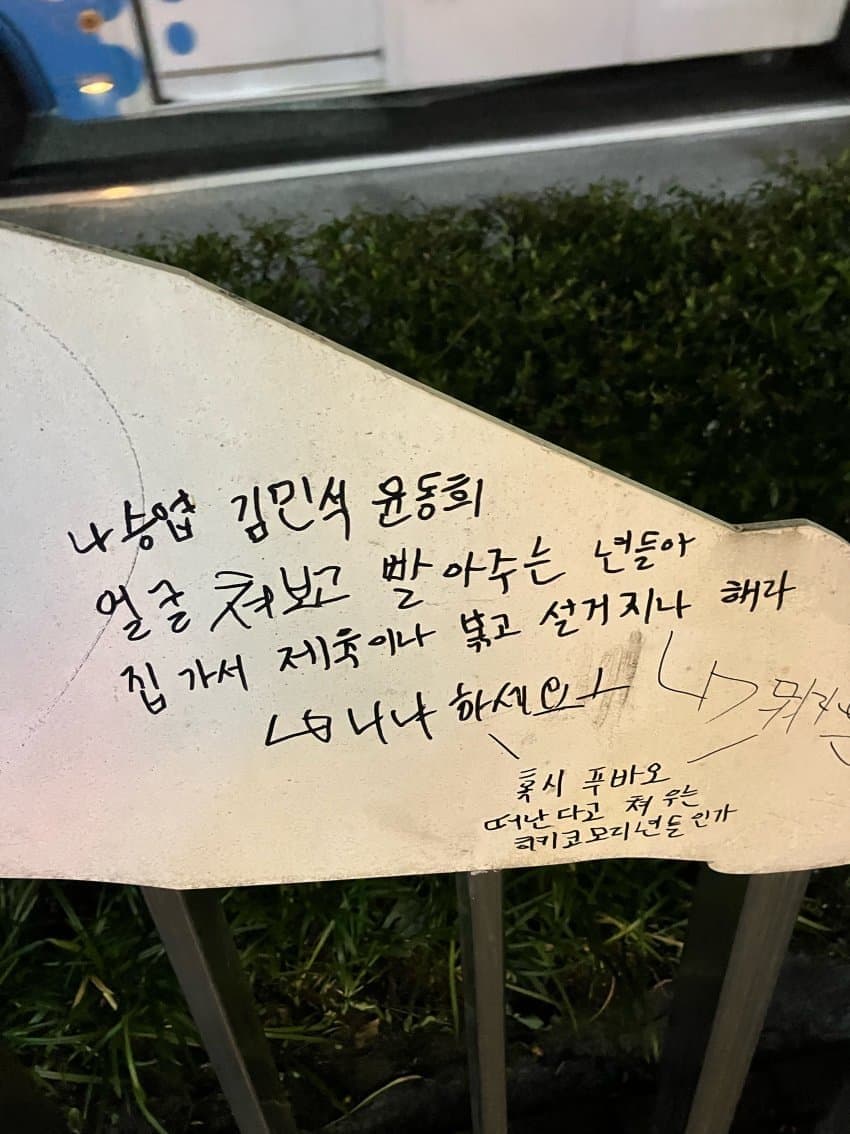 나승엽 김민석 윤동희
얼굴 쳐보고 빨아주는 년들아
집 가서 제육이나 볶고 설거지나 해라
↳ 너나 하세요ㅗ
혹시 푸바오
떠난다고 쳐 우는
히키코모리년들인가